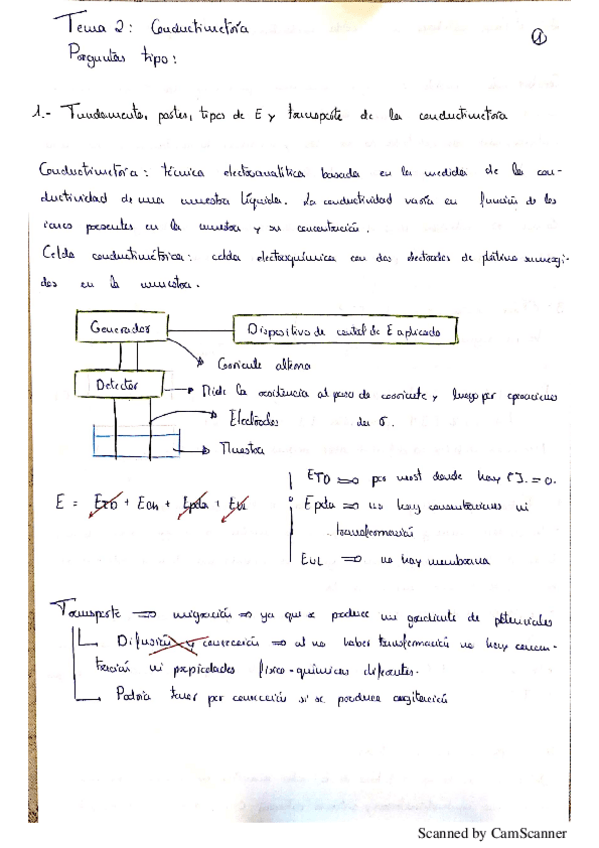 Tema 2: Conductimetría
Preguntas tipo:
1
1.- Fundamento, partes, tipos de E y transporte de la conductimetría
Conductimetría: técnica electroanalítica basada en la medida de la con-
ductividad de una muestra líquida. La conductividad varía en función de los
iones presentes en la muestra y su concentración.
Celda conductimétrica: celda electroquímica con dos electrodos de platino sumergi-
dos en la muestra.
Generador
Dispositivo de control de E aplicado
Corriente alterna
Detector
Mide la resistencia al paso de corriente y luego por operaciones
Electrodos
da σ.
Muestra
E = + Eoh + +
por donde hay = 0.
Epda => no hay concentraciones ni
transformación
EUL => no hay membrana
Transporte => migración => ya que se produce un gradiente de potenciales
Difusión y convección => al no haber transformación no hay concen-
tración ni propiedades físico-químicas diferentes.
Podría tener por convección si se produce agitación
Scanned by CamScanner